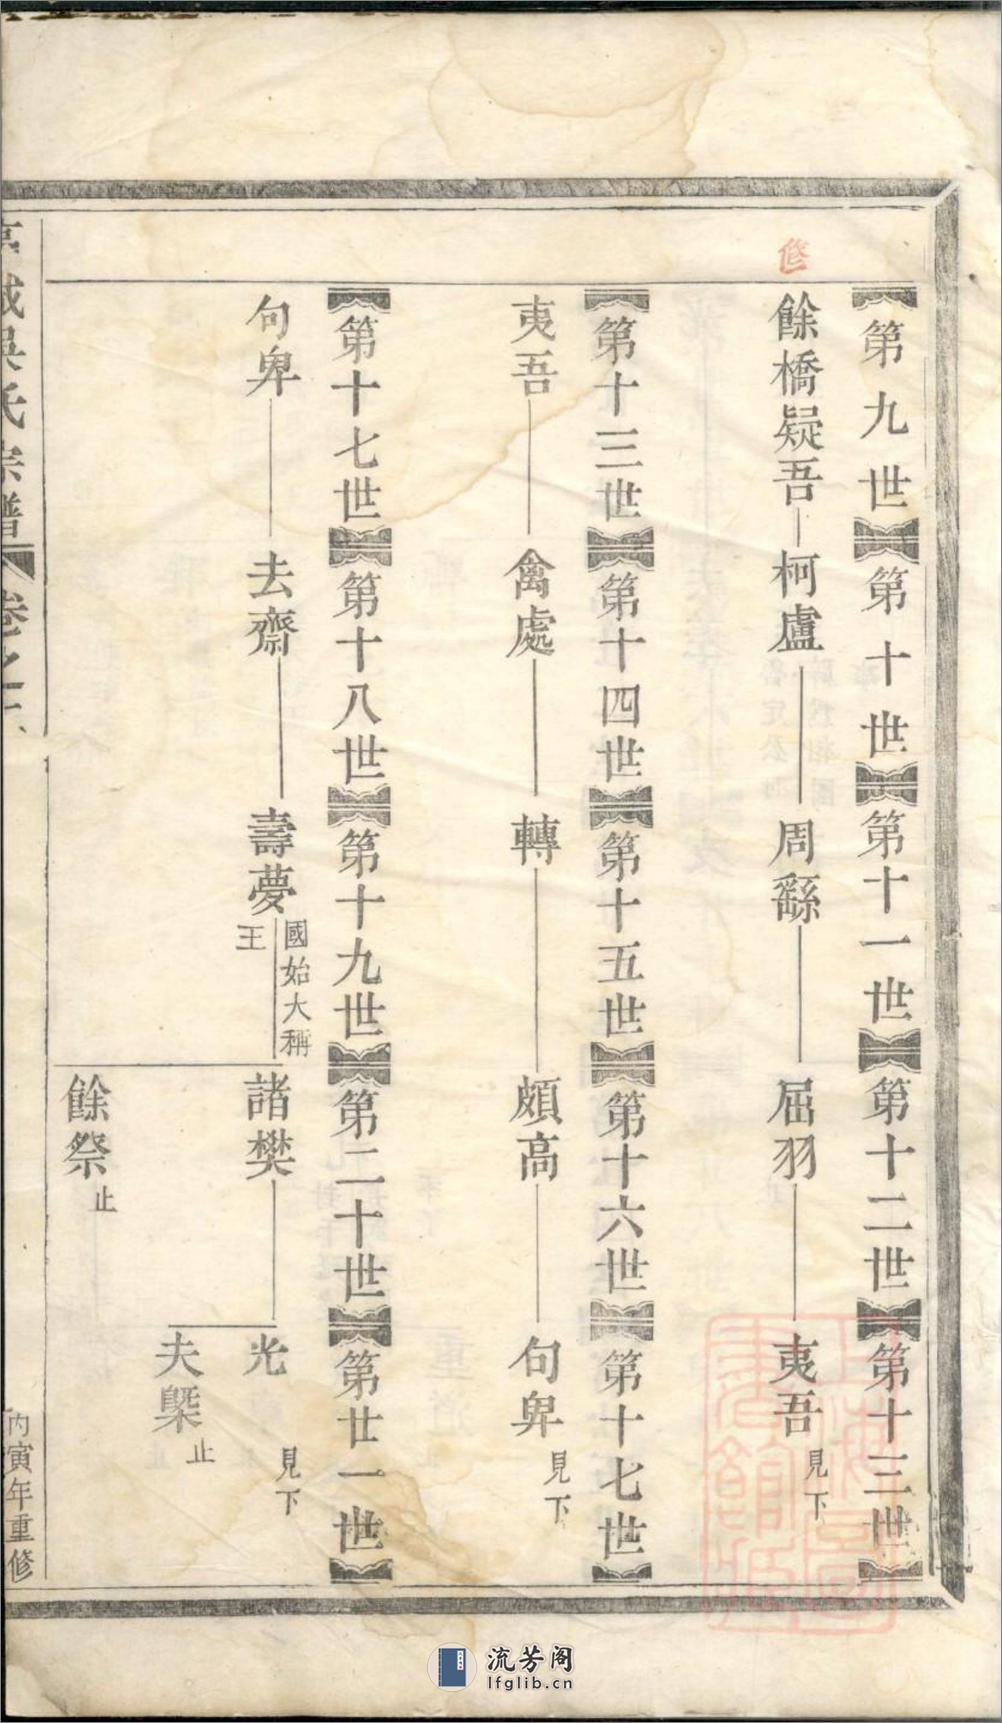 修
第九世 第十世 第十一世 第十二世 第十三世
餘橋疑吾 柯盧 周繇 屈羽 夷吾 見下
第十三世 第十四世 第十五世 第十六世 第十七世
夷吾 禽處 轉 頗高 句卑 見下
第十七世 第十八世 第十九世 第二十世 第廿一世
句卑 去齋 壽夢 國始大稱王 諸樊 光 見下
夫槩 止
餘祭 止
吳氏宗譜 卷之
丙寅年重修
流芳阁
lfglib.cn